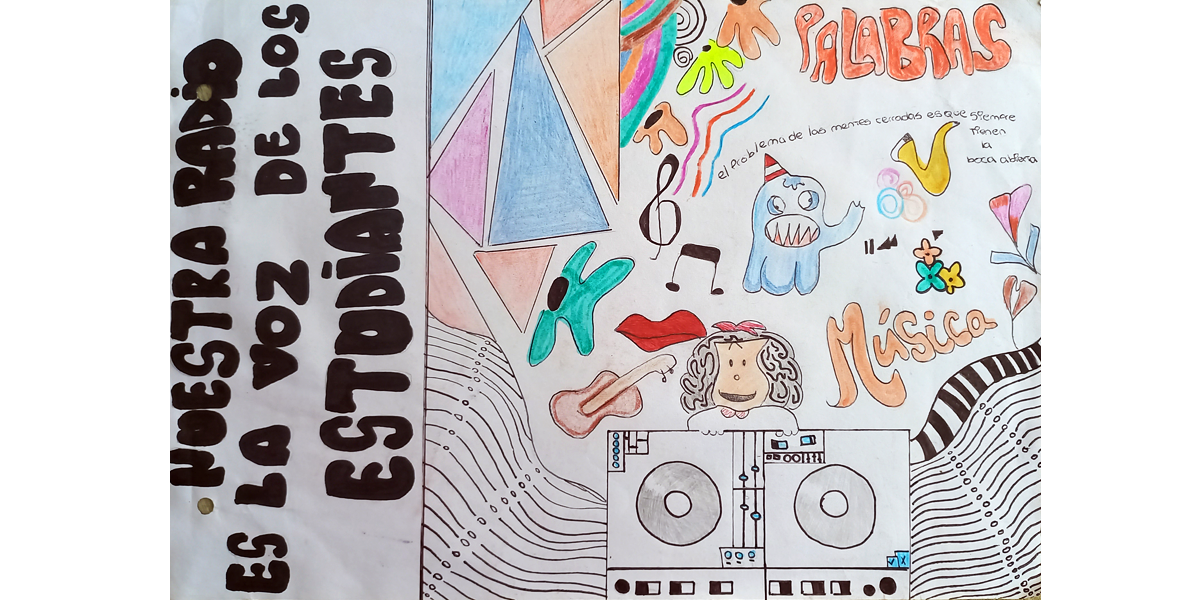 NUESTRA RADIO
ES LA VOZ DE LOS
ESTUDIANTES
PALABRAS
el problema de las mentes cerradas es que siempre
tienen
la
boca abierta
Música